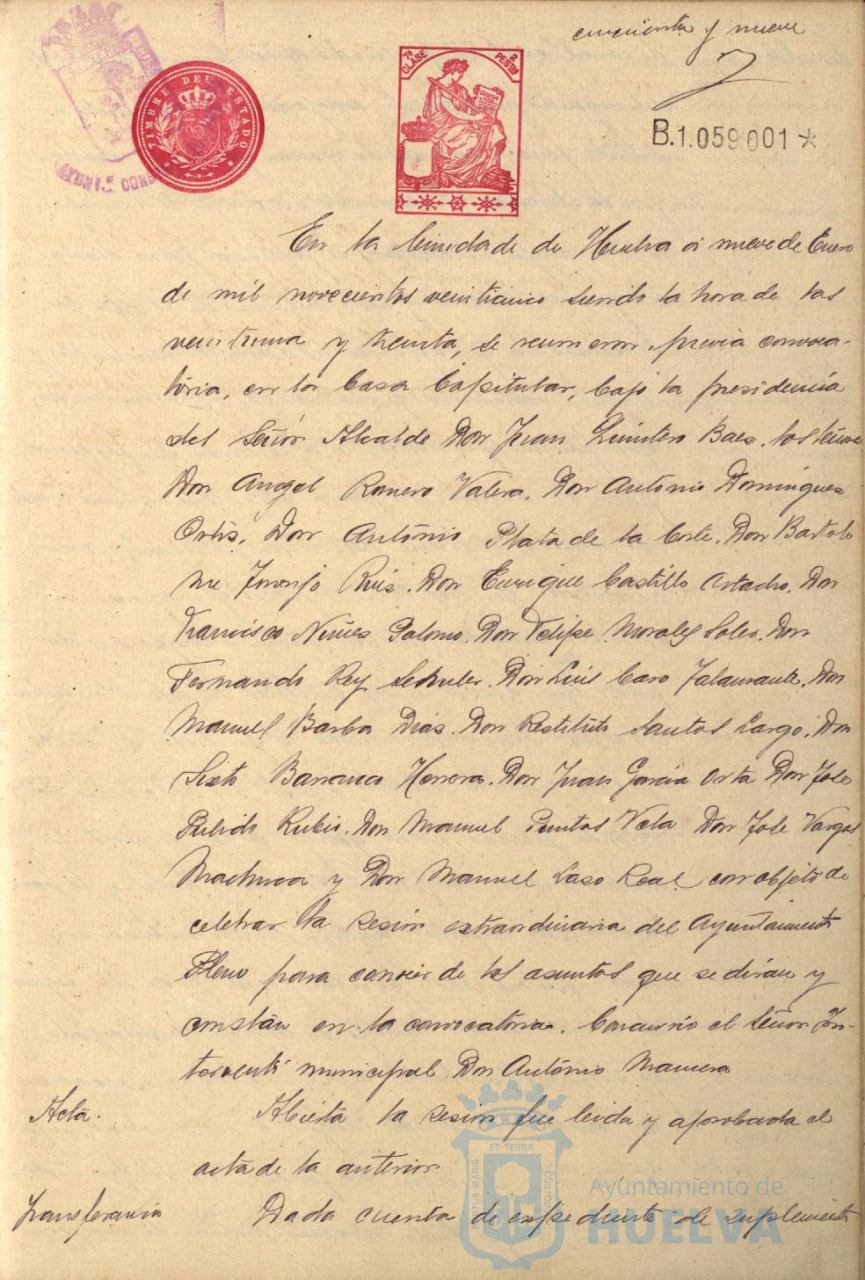 cincuenta y nueve
TIMBRE DEL ESTADO
7ª CLASE 2 PESETAS
B.1.059.001 *
En la Ciudad de de Huelva a nueve de Enero
de mil novecientos veinticinco siendo la hora de las
veintiuna y treinta, se reunieron, previa convoca-
toria, en la Casa Capitular, bajo la presidencia
del Señor Alcalde Don Juan Quintero Baez, los señores
Don Angel Romero Valera, Don Antonio Dominguez
Ortiz, Don António Plata de la Corte, Don Bartolo
me Toronjo Ruis, Don Enrique Castillo Artacho, Don
Francisco Nuñes Palomo, Don Felipe Morales Soler, Don
Fernando Rey Schuler, Don Luis Caro Don
Manuel Barba Dias, Don Restituto Santos Largo, Don
Sixto Barranco Herrera, Don Juan Garcia Orta Don Jose
Pulido Rubio, Don Manuel Puntas Vela Don Jose Vargas
Machuca y Don Manuel Laso Real con objeto de
celebrar la sesión extraordinaria del Ayuntamiento
Pleno para conocer de los asuntos que se dirán y
constan en la convocatoria. Concurrio el Señor In-
terventor municipal Don António Mamera
Acta. Abierta la sesión fue leida y aprobada el
acta de la anterior
Transferencia Dada cuenta de expediente de suplemento
Ayuntamiento de
HUELVA